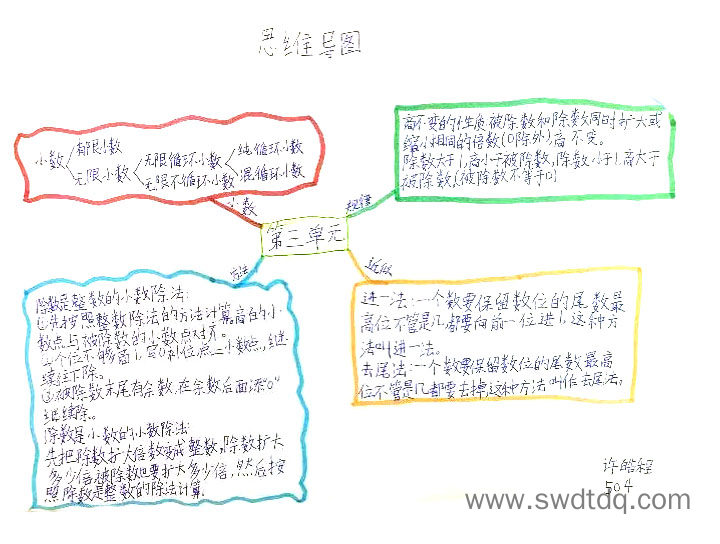 思维导图
小数
有限小数
无限小数
无限循环小数
无限不循环小数
纯循环小数
混循环小数
小数
商不变的性质被除数和除数同时扩大或
缩小相同的倍数(0除外)商不变。
除数大于1,商小于被除数,除数小于1,商大于
被除数(被除数不等于0)
规律
第三单元
方法
近似
除数是整数的小数除法:
①先按照整数除法的方法计算,商的小
数点与被除数的小数点对齐。
②个位不够商1,写0补位,点上小数点,继
续往下除。
③被除数末尾有余数,在余数后面添"0"
继续除。
除数是小数的小数除法:
先把除数扩大倍数变成整数,除数扩大
多少倍,被除数也要扩大多少倍,然后按
照除数是整数的除法计算.
进一法:一个数要保留数位的尾数最
高位不管是几都要向前一位进1,这种方
法叫进一法。
去尾法:一个数要保留数位的尾数最高
位不管是几都要去掉这种方法叫作去尾法。
许皓程
504
www.swdtdq.com